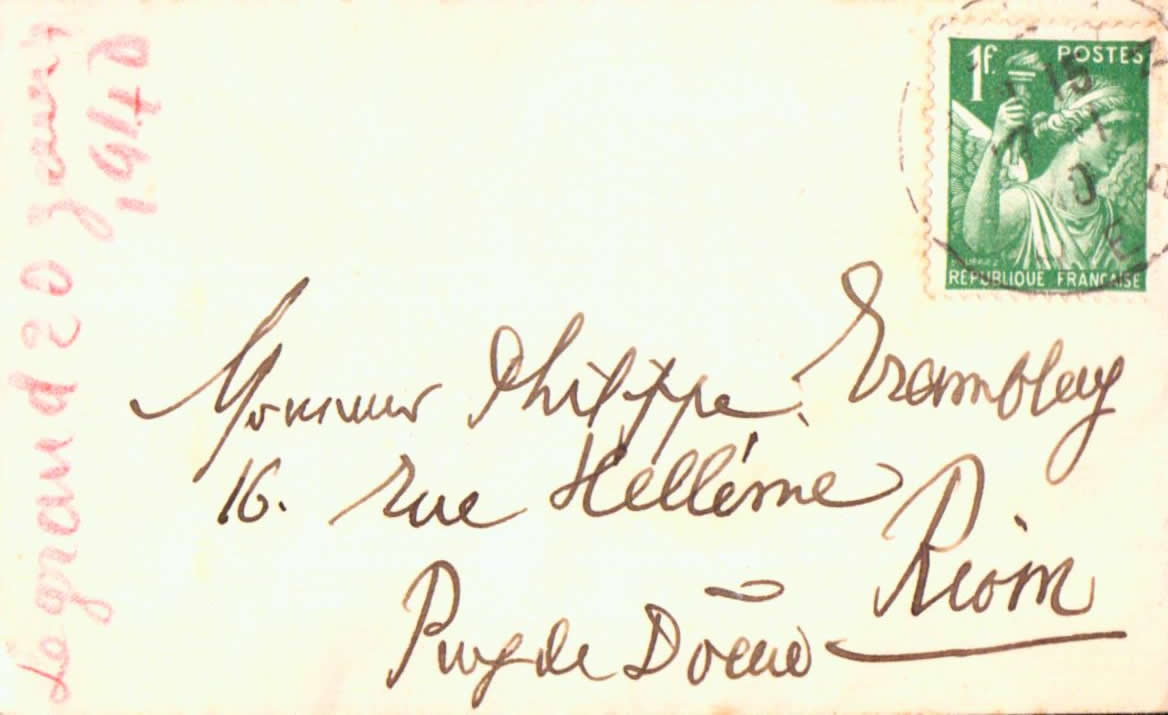 1f. POSTES
RÉPUBLIQUE FRANÇAISE
Monsieur Philippe Trambley
16. rue Hellénie
Riom
Puy de Dôme
Legrand 20 Janvier
1940